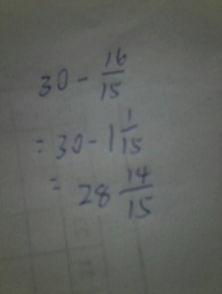 30 - 16/15
= 30 - 1 1/15
= 28 14/15